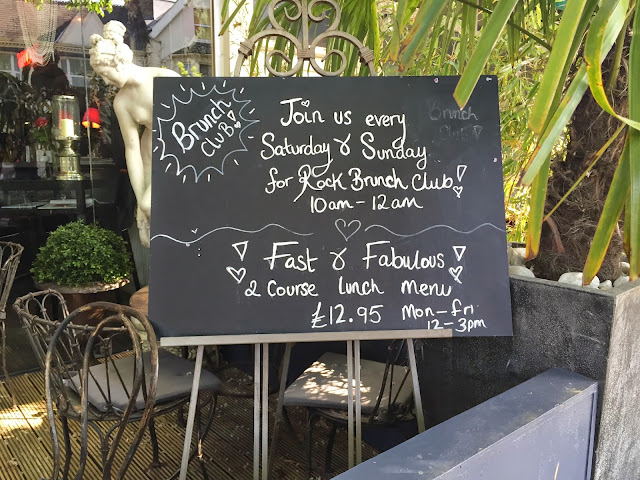 Brunch
Club!
Join us every
Saturday & Sunday
for Rock Brunch Club!
10am - 12am
Brunch
Club!
Fast & Fabulous!
2 course lunch menu
£12.95 Mon-fri
12-3pm